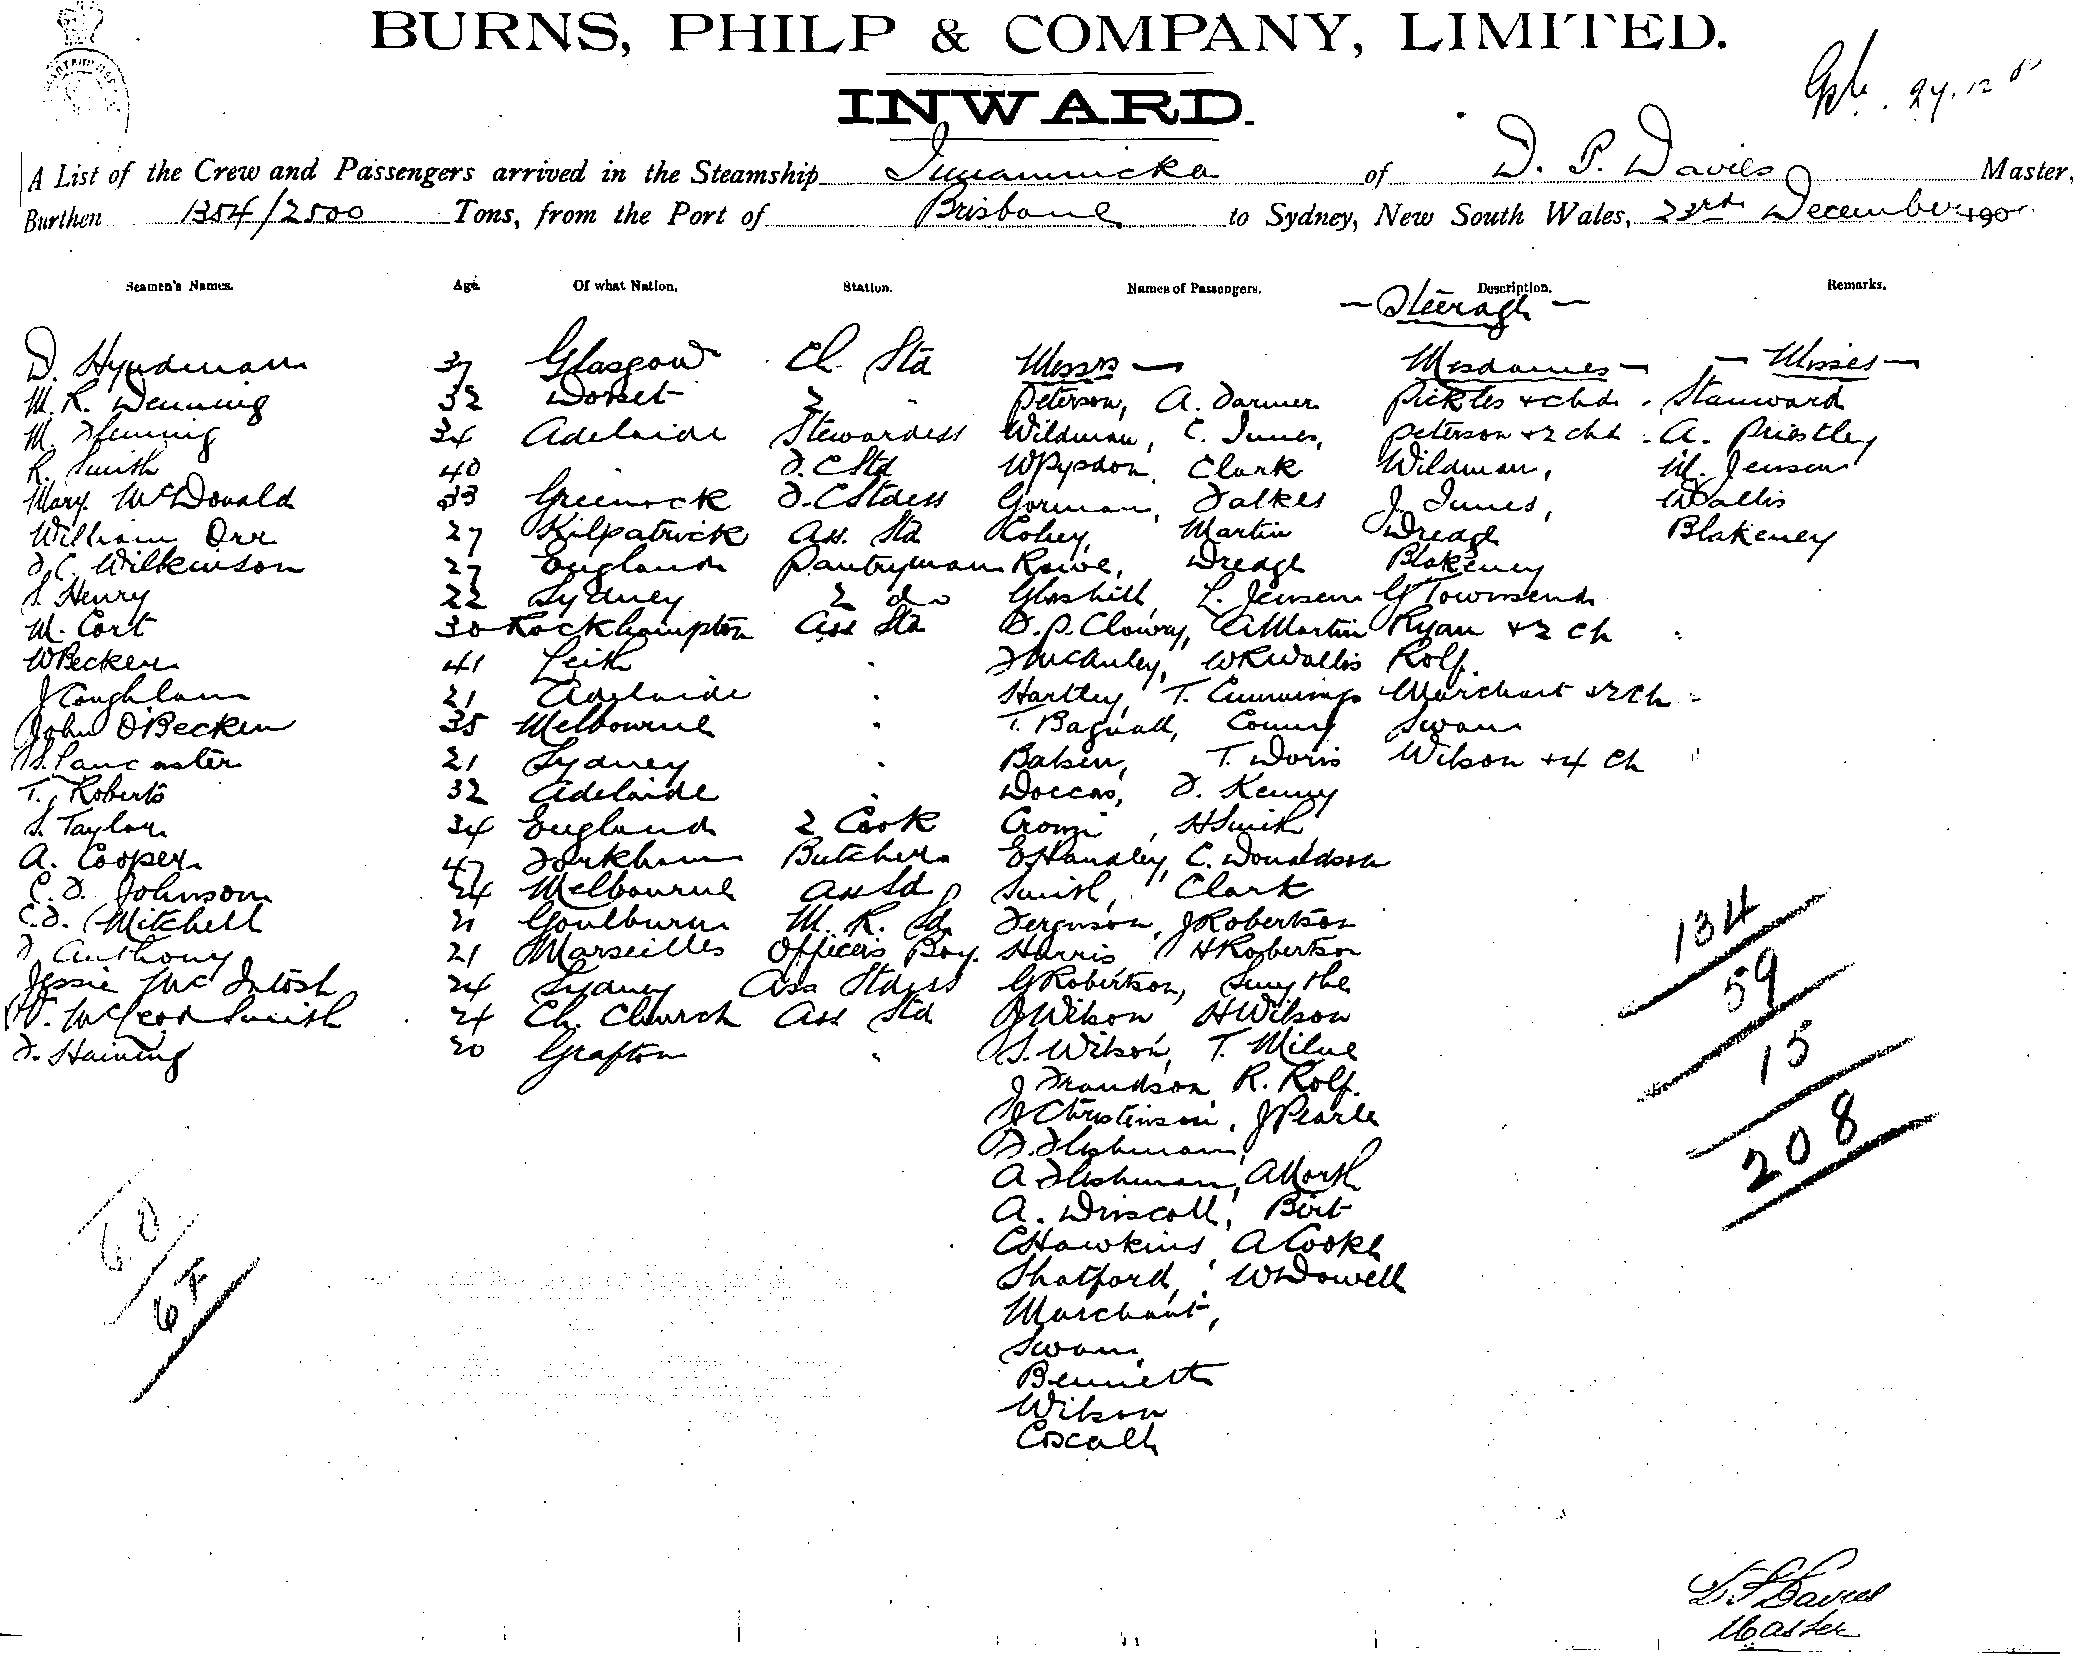 BURNS, PHILP & COMPANY, LIMITED.
INWARD.
A List of the Crew and Passengers arrived in the Steamship of D. P. Davies Master,
Burthen 1354/2500 Tons, from the Port of Brisbane to Sydney, New South Wales, 23rd December 190
Seamen's Names. Age. Of what Nation. Station. Names of Passengers. Description. Remarks.
- Steerage -
D. Hyndman 37 Glasgow Ch. Std Messrs - Mesdames - - Misses -
M. R. Denning 32 Dorset 2 " Peterson, A. Darmer Pickles + chd. Stanward
M. Fleming 34 Adelaide Stewardess Wildman, C. Innes, Peterson + 2 chd A. Priestley
R. Smith 40 F. C Std Clark Wildman, M. Jensen
Mary McDonald 33 Greenock F. C Stdess Gorman, Falkes J. Innes, Wallis
William Orr 27 Kilpatrick Ass. Std Cohey, Martin Dredge Blakeney
F. C. Wilkinson 27 England Pantryman Rowe, Dredge Blakeney
S. Henry 22 Sydney 2 do Glashill, L. Jensen G Townsend
M. Cort 30 Rockhampton Ass Std D. P. Clowry, A Martin Ryan + 2 ch
W Becker 41 Leith " F McAuley, W R Wallis Rolf.
J Coughlan 21 Adelaide " Hartley, T. Cummings Marchant + 2 Ch
John O'Becken 35 Melbourne " T. Bagnall, Swan
S. Lancaster 21 Sydney " Balsen, T. Doris Wilson + 4 Ch
T. Roberts 32 Adelaide " Doccas, F. Kenny
S. Taylor 34 England 2 Cook , H Smith
A. Cooper 47 Butcher E Handley, C. Donaldson
C. F. Johnson 24 Melbourne Ass Sd Smith, Clark
C. F. Mitchell 21 Goulburn M. R. Sd. Ferguson, J Robertson
F Anthony 21 Marseilles Officers Boy. Harris H Robertson
Jessie McIntosh 24 Sydney Ass Stdess G Robertson, Smythe
W. McLeod Smith 24 Ch. Church Ass Std J Wilson H Wilson
F. Haining 20 Grafton " S. Wilson, T. Milne
J Frandson, R. Rolf.
J Christinson, J Pearle
F. Fleshman,
A Fleshman, A North
A. Driscoll, Birt
C Hawkins A Cooke
Shatford, W Dowell
Marchant,
Swan,
Bennett
Wilson
Coscalh
134
59
15
208
60
64
D P Davies
Master